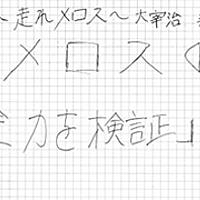 走れメロス〜 太宰治
メロス
力を検証」